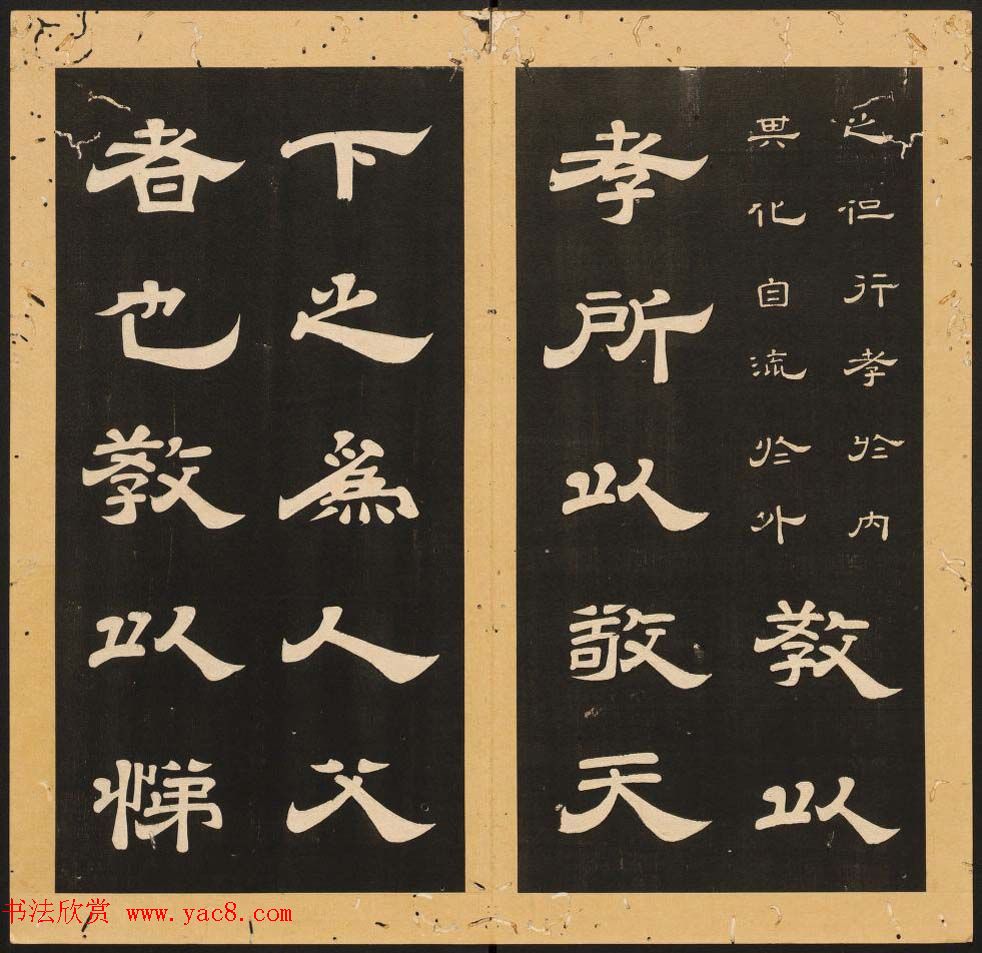 之但行孝於內
其化自流於外
教以
孝所以敬天
下之為人父
者也教以悌
书法欣赏 www.yac8.com